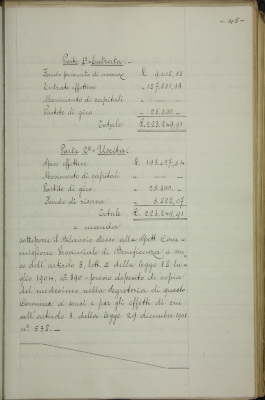 - 45 -
Parte 1ª Entrata:
Fondo presunto di avanzo £. 9.015,78
Entrate effettive
Movimento di capitali
Partite di giro " 26.500. -
Totale £. 223.249,91
Parte 2ª Uscita:
Spese effettive £.
Movimento di capitali
Partite di giro " 26.500. -
Fondo di riserva
Totale £. 223.249,91
e manda
sottoporre il Bilancio stesso alla Spett. Com-
missione Provinciale di Beneficenza a sen-
so dell'articolo 3, lett. 2 della legge 18 lu-
glio 1904, Nº 390 - previo deposito di copia
del medesimo nella Segreteria di questo
Comune ai sensi e per gli effetti di cui
all'articolo 3 della legge 29 dicembre 1901
Nº 535. -